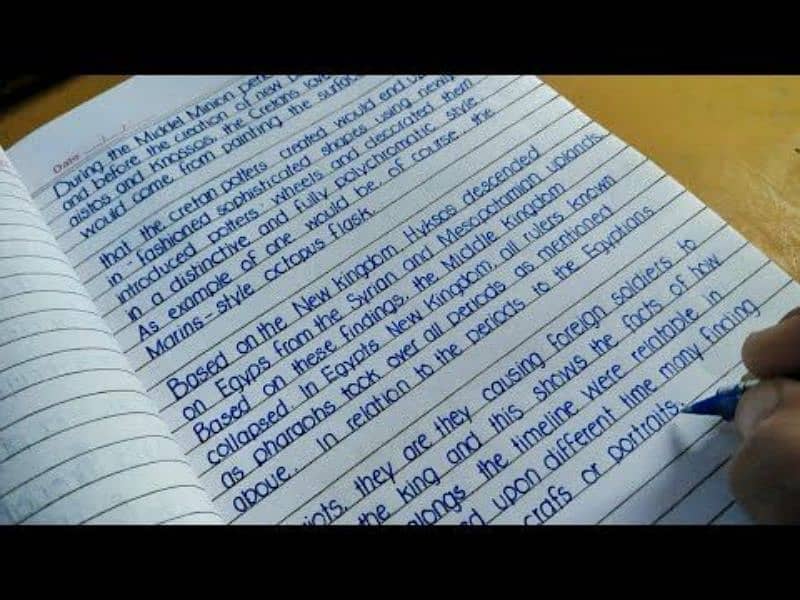 Date
During the Middel Minion
and before the creation of new
aistos and Knossos, the Cretans love
would come from painting the surface
that the cretan potters created would end
in-fashioned sophisticated shapes using newly
introduced potters' wheels and decorated them
in a distinctive and fully polychromatic style
As example of one would be, of course.. the
Marins-style octopus flask.
Based on the New kingdom, Hyksos descended
on Egyps from the Syrian and Mesopotamian uplands
Based on these findings, the Middle Kingdom
collapsed in Egypts New Kingdom, all rulers known
as pharaohs took over all periods as mentioned
above.. In relation to the periods to the Egyptians
they are they causing foreign soldiers to
the king and this shows the facts of how
alongs the timeline were relatable in
upon different time many finding
crafs or portraits.